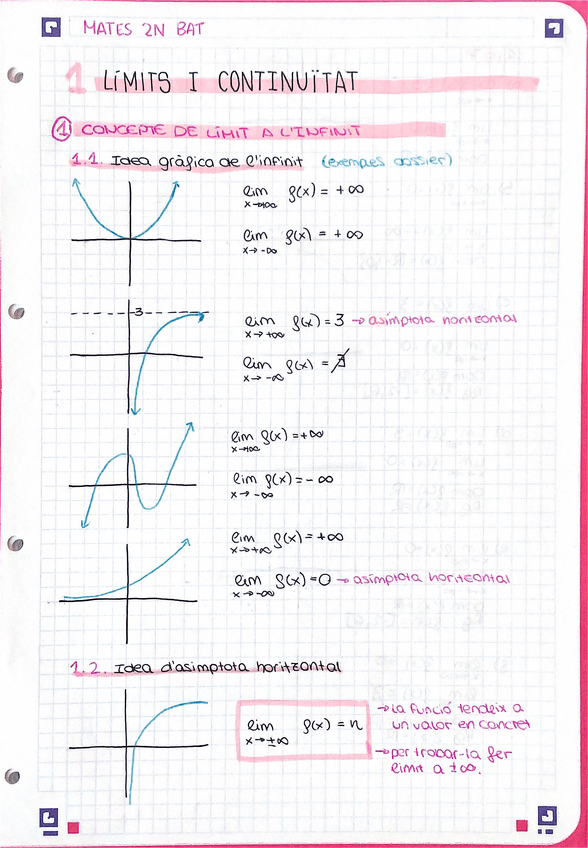 MATES 2N BAT
1 LÍMITS I CONTINUÏTAT
① CONCEPTE DE LÍMIT A L'INFINIT
1.1. Idea gràfica de l'infinit (exemples dossier)
lim f(x) = +∞
x→+∞
lim f(x) = +∞
x→-∞
3
lim f(x) = 3 → asímptota horitzontal
x→+∞
lim f(x) = ∄
x→-∞
lim f(x) = +∞
x→+∞
lim f(x) = -∞
x→-∞
lim f(x) = +∞
x→+∞
lim f(x) = 0 → asímptota horitzontal
x→-∞
1.2. Idea d'asímptota horitzontal
lim f(x) = n
x→±∞
→ La funció tendeix a
un valor en concret
→ per trobar-la fer
límit a ±∞.